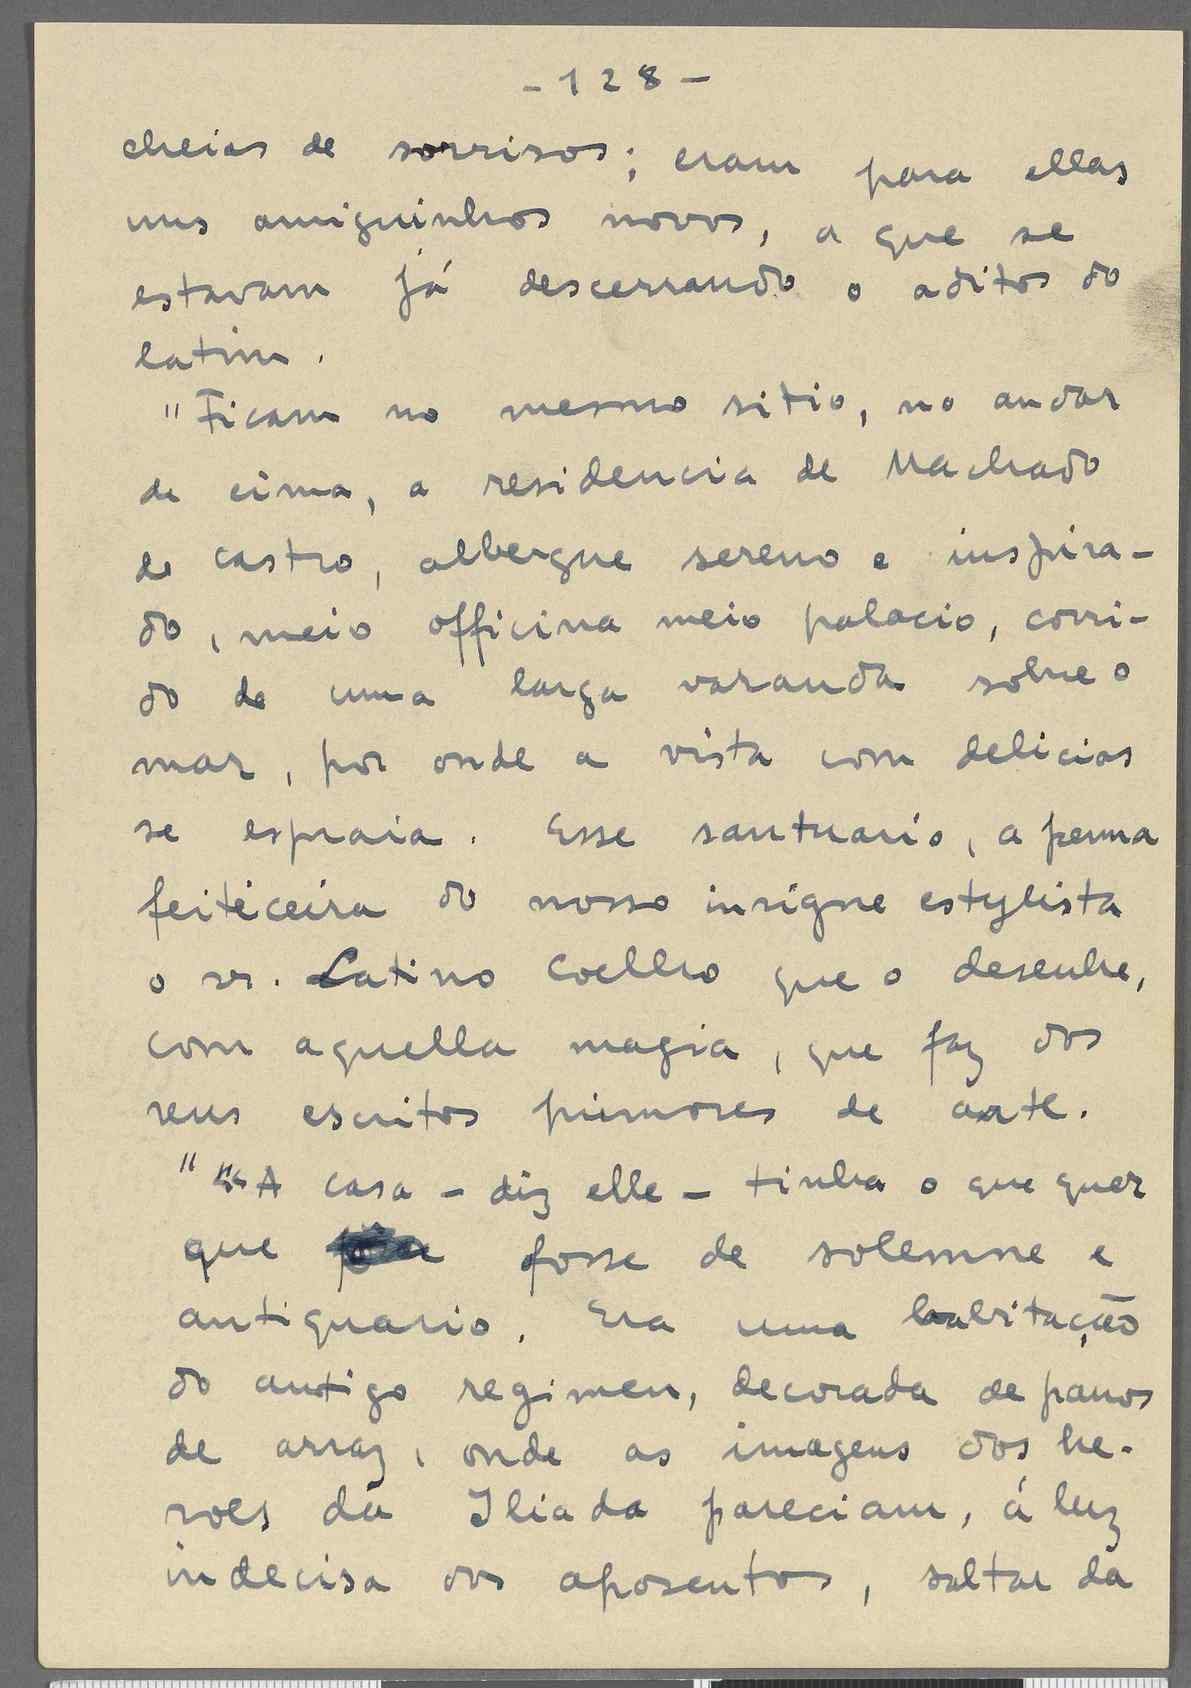 - 128 -
cheias de sorrisos; eram para ellas
uns amiguinhos novos, a que se
estavam já descerrando o aditos do
latim.
"Ficam no mesmo sitio, no andar
de cima, a residencia de Machado
de Castro, albergue sereno e inspira-
do, meio officina meio palacio, corri-
do de uma larga varanda sobre o
mar, por onde a vista com delicias
se espraia. Esse santuario, a penna
feiticeira do nosso insigne estylista
o sr. Latino Coelho que o desenhe,
com aquella magia, que faz dos
seus escritos primores de arte.
" "A casa - diz elle - tinha o que quer
que fosse de solemne e
antiquario. Era uma habitação
do antigo regimen, decorada de panos
de arraz, onde as imagens dos he-
roes da Iliada pareciam, á luz
indecisa dos aposentos, saltar da